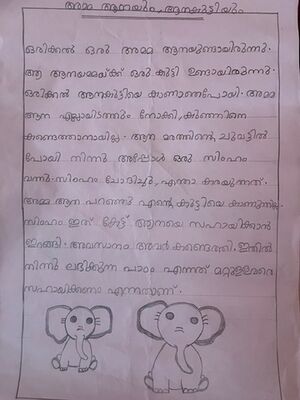 അമ്മ ആനയും, ആനകുട്ടിയും
ഒരിക്കൽ ഒരു അമ്മ ആനയുണ്ടായിരുന്നു.
ആ ആനയമ്മയ്ക്ക് ഒരു കുട്ടി ഉണ്ടായിരുന്നു.
ഒരിക്കൽ ആനകുട്ടിയെ കാണാതെപോയി. അമ്മ
ആന എല്ലായിടത്തും നോക്കി, കുഞ്ഞിനെ
കണ്ടെത്താനായില്ല. ആന മരത്തിന്റെ ചുവട്ടിൽ
പോയി നിന്നു അപ്പോൾ ഒരു സിംഹം
വന്നു. സിംഹം ചോദിച്ചു, എന്താ കരയുന്നത്.
അമ്മ ആന പറഞ്ഞു എന്റെ കുട്ടിയെ കാണുന്നില്ല.
സിംഹം ഇത് കേട്ട് ആനയെ സഹായിക്കാൻ
ഇറങ്ങി. അവസാനം അവർ കണ്ടെത്തി. ഇതിൽ
നിന്ന് ലഭിക്കുന്ന പാഠം എന്നത് മറ്റുള്ളവരെ
സഹായിക്കണം എന്നതാണ്.